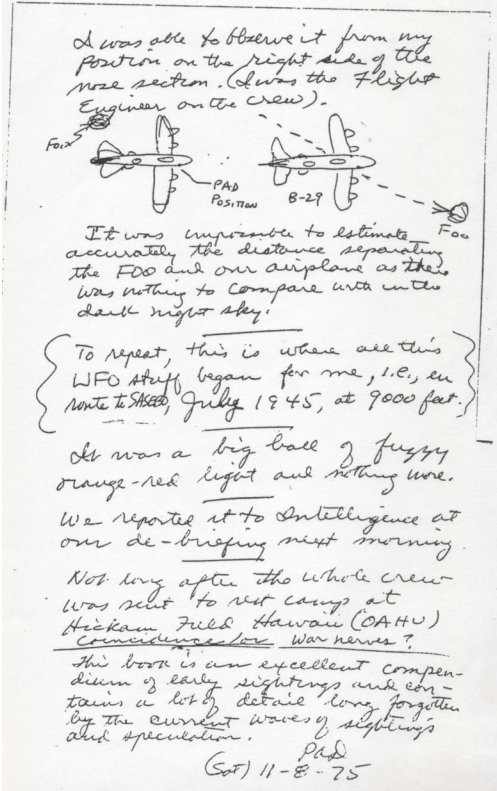 I was able to observe it from my
position on the right side of the
nose section. (I was the Flight
Engineer on the crew).
Foo
PAD
POSITION
B-29
Foo
It was impossible to estimate
accurately the distance separating
the FOO and our airplane as there
was nothing to compare with in the
dark night sky.
To repeat, this is where all this
UFO stuff began for me, i.e., en
route to SASEBO, July 1945, at 9000 feet.
It was a big ball of fuzzy
orange-red light and nothing more.
We reported it to Intelligence at
our de-briefing next morning.
Not long after the whole crew
was sent to rest camp at
Hickam Field Hawaii (OAHU)
Coincidence or war nerves?
This book is an excellent compen-
dium of early sightings and con-
tains a lot of detail long forgotten
by the current waves of sightings
and speculation.
PAD
(Sat) 11-8-75